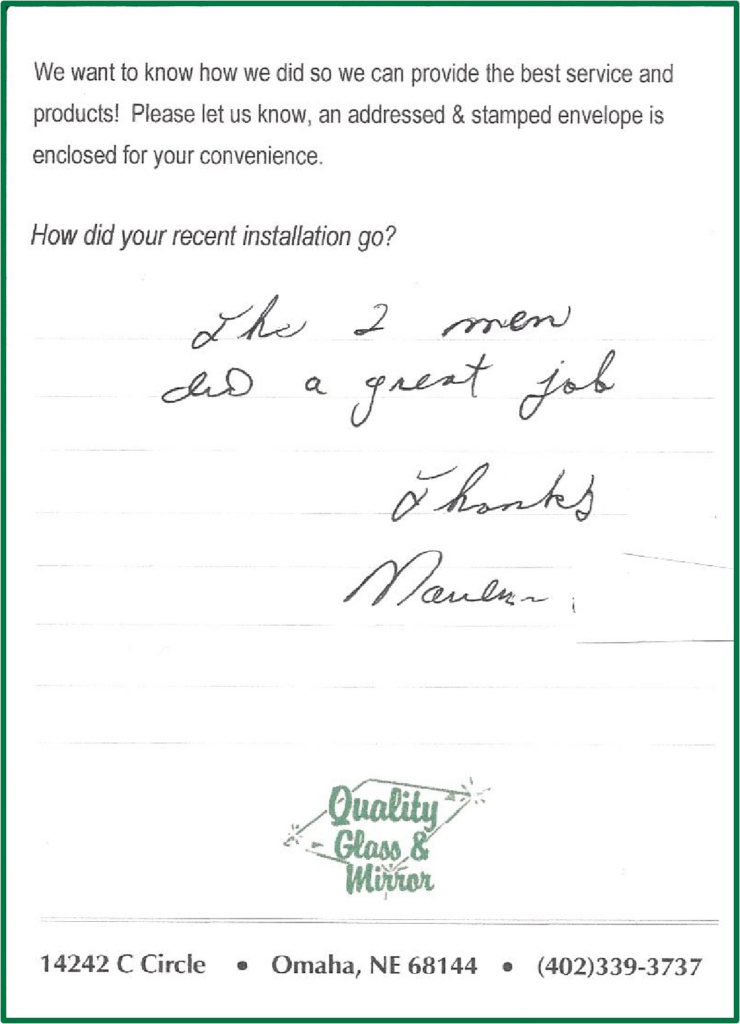 We want to know how we did so we can provide the best service and
products! Please let us know, an addressed & stamped envelope is
enclosed for your convenience.
How did your recent installation go?
The 2 men
did a great job
Thanks
Quality
Glass &
Mirror
14242 C Circle • Omaha, NE 68144 • (402)339-3737